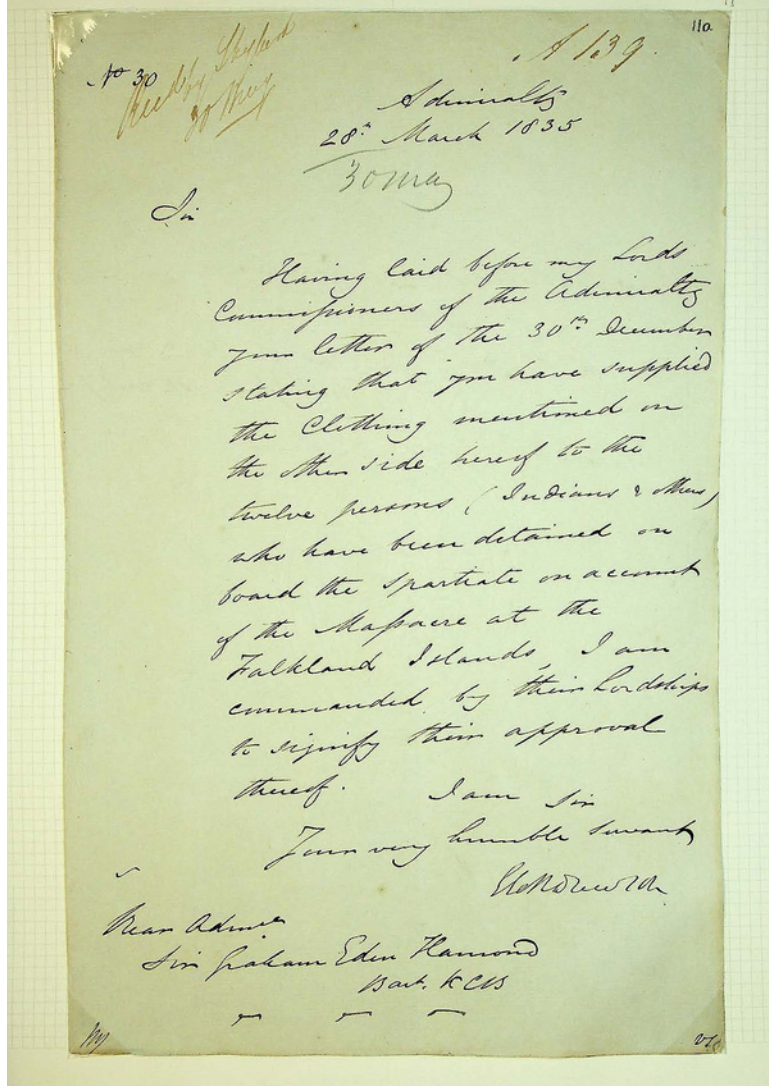 11a
No 30
A 139.
Recd by
Admiralty
28th March 1835
30 May
Sir
Having laid before my Lords
Commissioners of the Admiralty
your letter of the 30th December
stating that you have supplied
the Clothing mentioned on
the other side hereof to the
twelve persons (Indians & others)
who have been detained on
board the Spartiate on account
of the Massacre at the
Falkland Islands, I am
commanded by their Lordships
to signify their approval
thereof. I am Sir
Your very humble Servant
Rear Adml
Sir Graham Eden Hamond
Bart. KCB